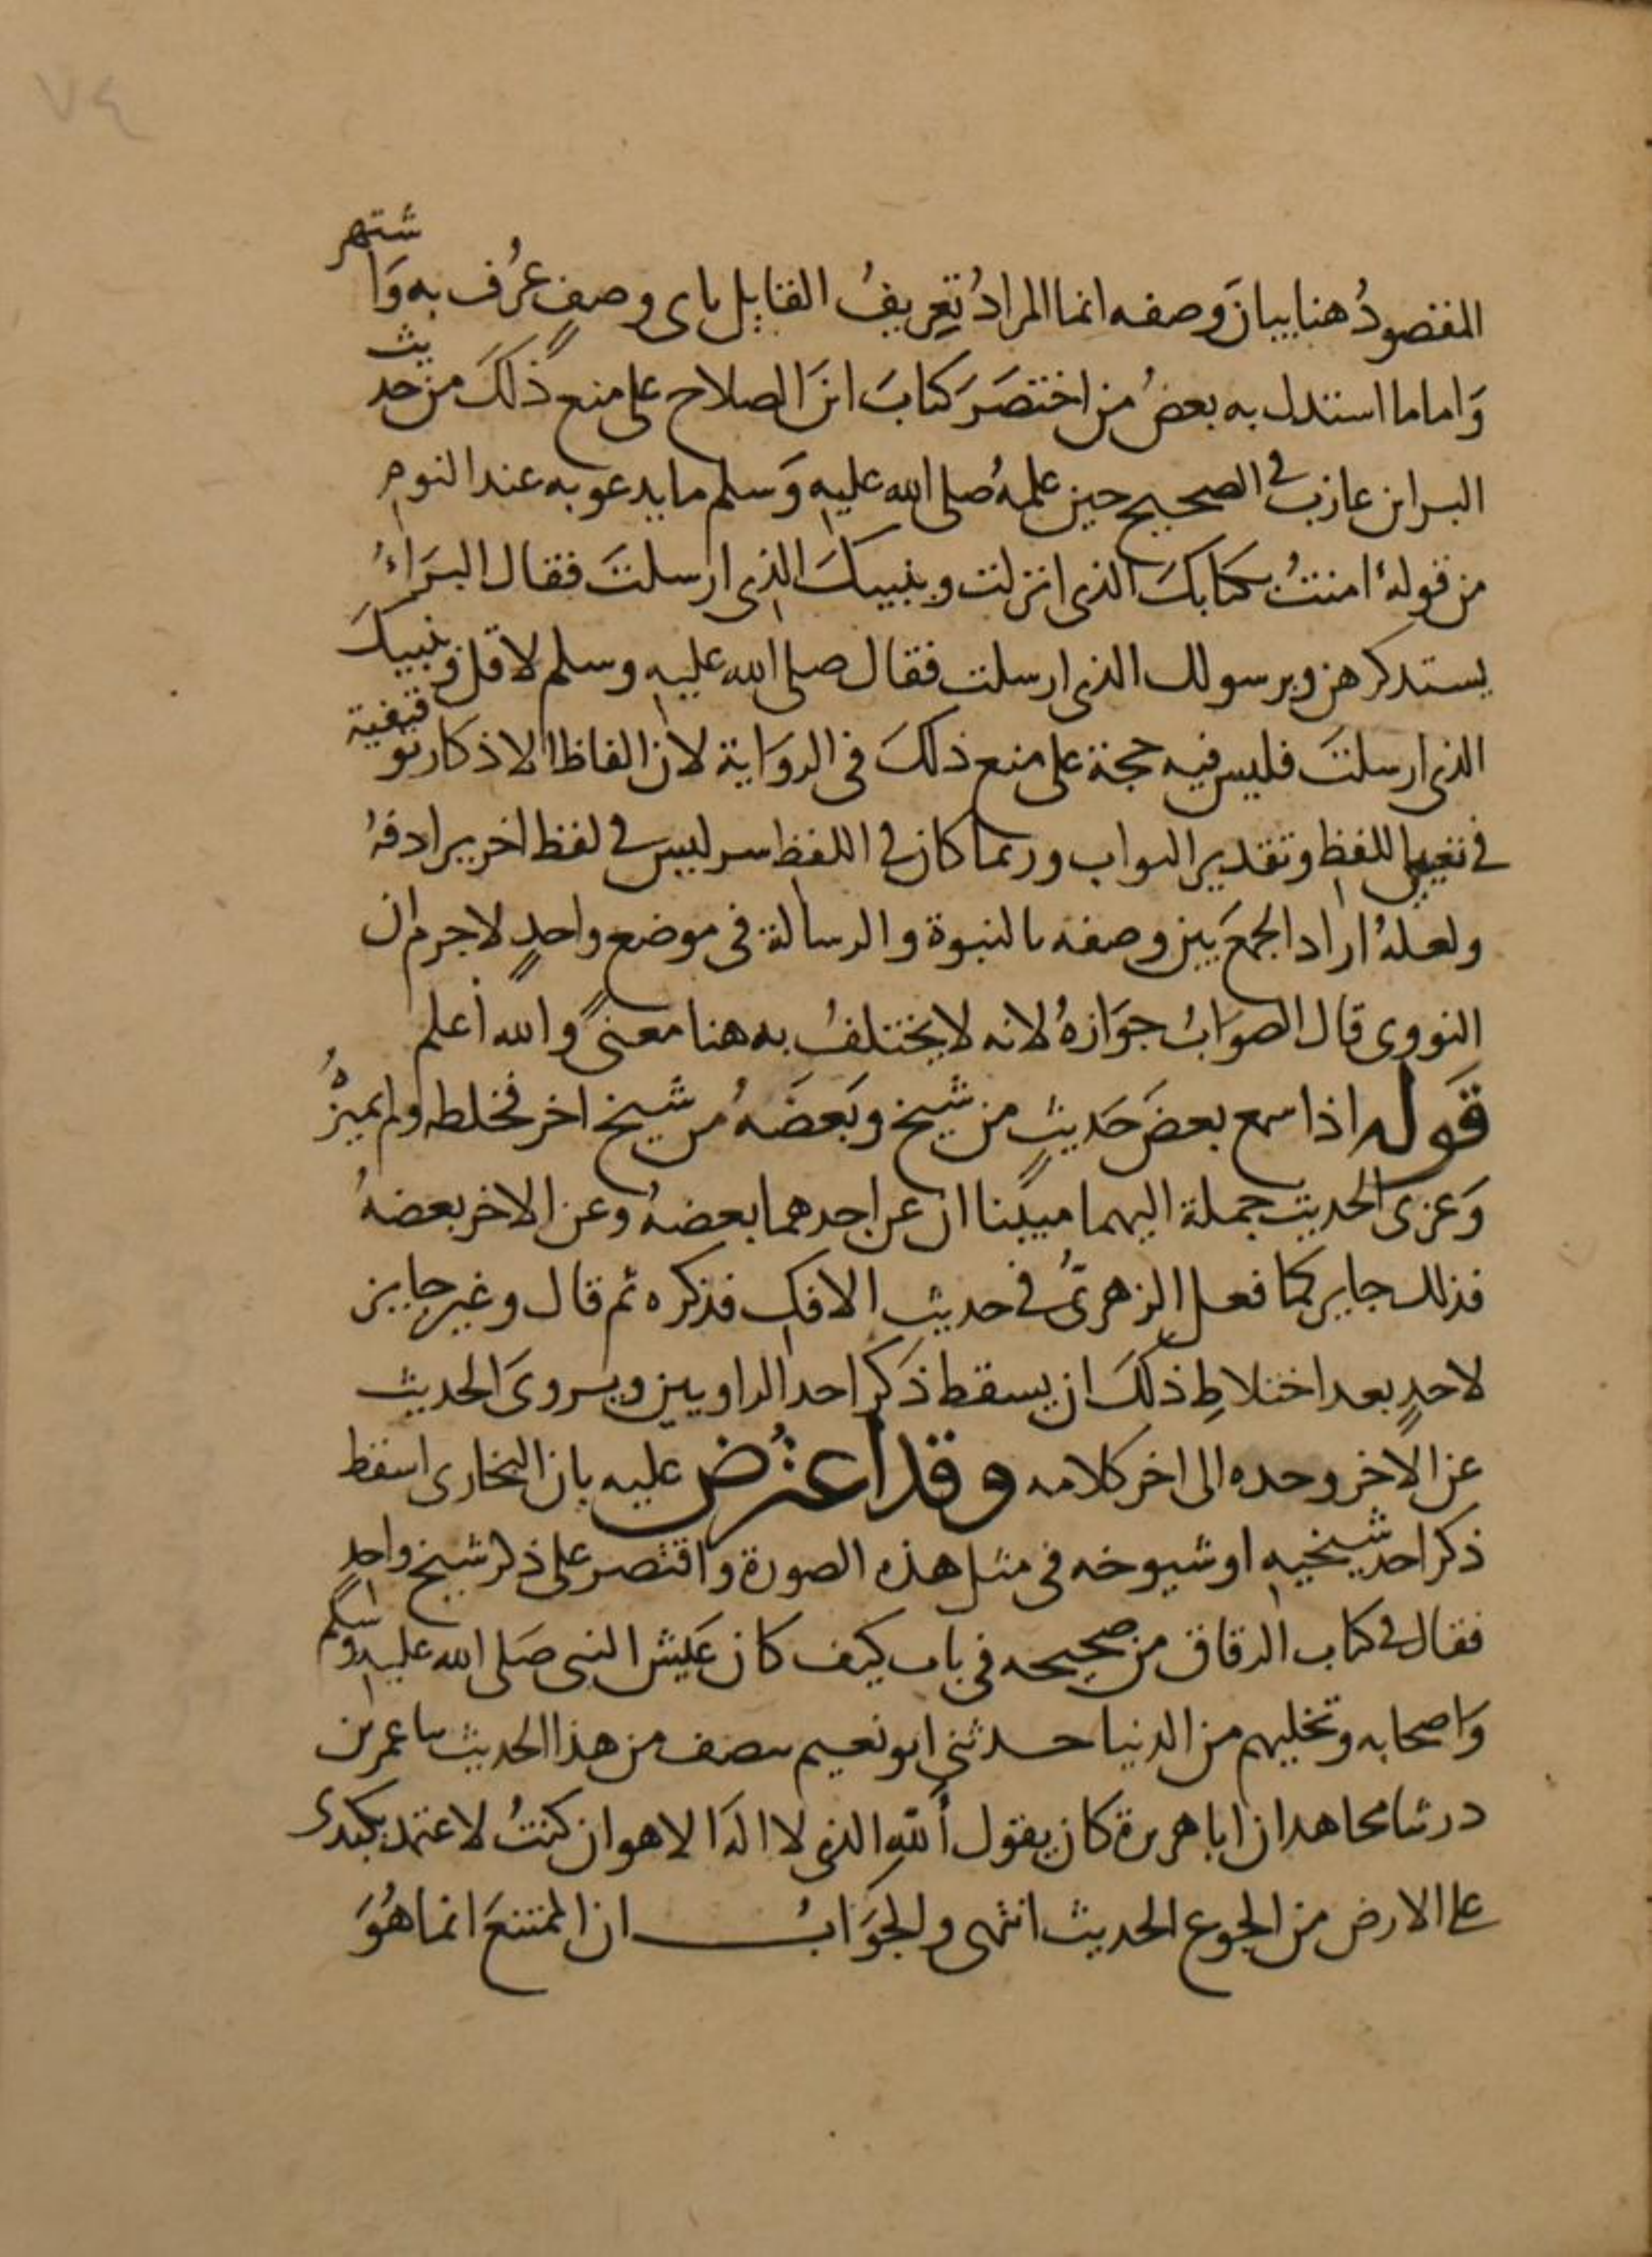 ٧٤
المقصودُ هنا بيانَ وصفه انما المرادُ تعريفُ القايل باى وصفٍ عُرف به وَاشتهر
وَاما ما استدل به بعضُ من اختصَرَ كتابَ ابنَ الصلاح على منع ذلكَ من حديث
البرا بن عازب فى الصحيح حين علمهُ صلى الله عليه وَسلم ما يدعو به عند النوم
من قوله امنتُ بكتابكَ الذى انزلت وبنبيكَ الذى ارسلتَ فقال البرَاءُ
يستذكرهن وبرسولك الذى ارسلت فقال صلى الله عليه وسلم لا قل وبنبيكَ
الذى ارسلتَ فليس فيه حجة على منع ذلكَ فى الروَاية لان الفاظ الاذكار توقيفية
فى تعيين اللفظ وتقدير الثواب وربما كان فى اللفظ سر ليس فى لفظ اخر يرادفهُ
ولعلهُ اراد الجمعَ بين وصفه بالنبوة والرسالة فى موضع واحدٍ لا جرم ان
النووى قال الصوَابُ جوَازهُ لانه لا يختلفُ به هنا معنىً والله أعلم
قَوله اذا سمع بعضَ حَديثٍ من شيخ وبَعضَهُ من شيخ اخر فخلطه ولم يميزْهُ
وَعزى الحديث جملة اليهما مبيّنا ان عن احدهما بعضهُ وعن الاخر بعضهُ
فذلك جايز كما فعل الزهرىُّ فى حديث الافك فذكره ثم قال وغير جايز
لاحدٍ بعد اختلاطِ ذلكَ ان يسقط ذكرَ احد الراويين ويروىَ الحديث
عن الاخر وحده الى اخر كلامه وقد اعترُض عليه بان البخارى اسقط
ذكر احد شيخيه او شيوخه فى مثل هذه الصورة واقتصر على ذكر شيخ واحدٍ
فقال فى كتاب الرقاق من صحيحه فى باب كيف كان عَيش النبى صَلى الله عليه وسلم
وَاصحابه وتخليهم من الدنيا حدثنى ابو نعيم بنصف من هذا الحديث ثنا عمر بن
در ثنا مجاهد ان ابا هريرة كان يقول أللهِ الذى لا اله الا هو ان كنتُ لاعتمد بكبدى
على الارض من الجوع الحديث انتهى والجوَابُ ان الممتنعَ انما هُوَ